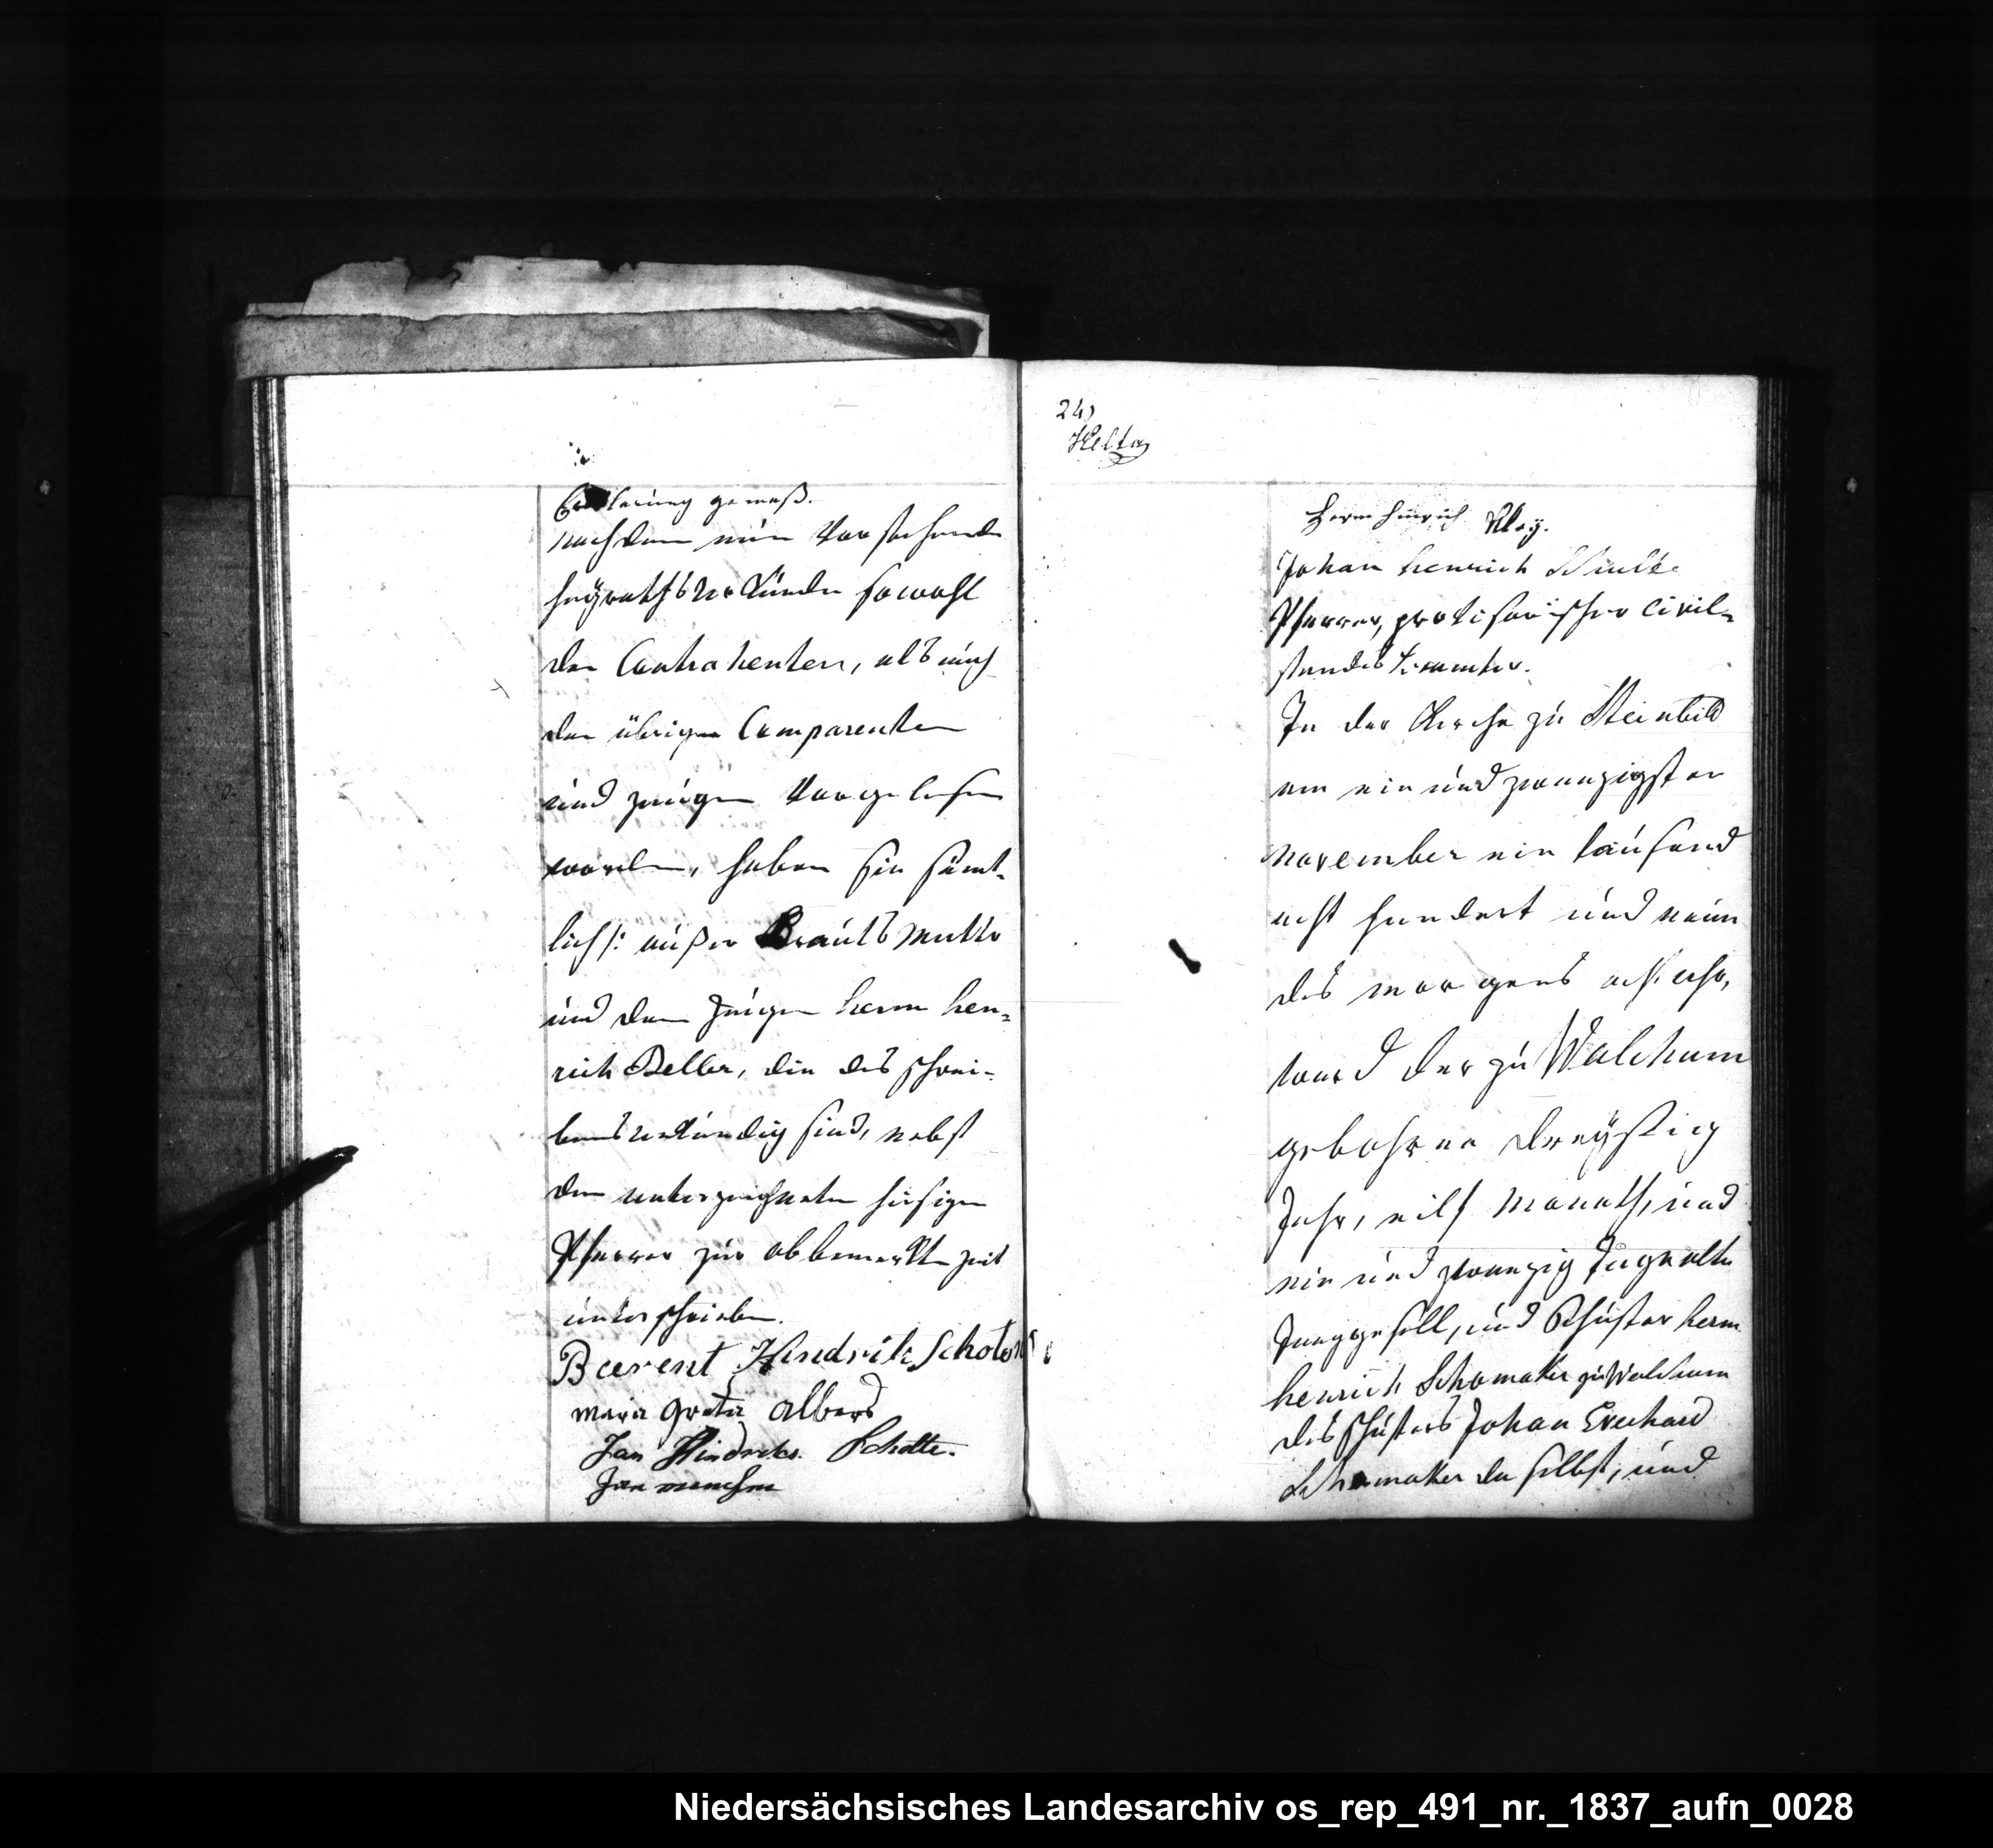 Erklarung gemaß.
nachdem nun Vorstehende
heyrathsurkunde sowohl
den Contrahenten, als auch
den übrigen Comparenten
und zeugen Vorgelesen
worden, haben sie sämt-
lich /: außer Brauts Mutter
und dem Zeugen herm hen=
rich Beller, die des schrei-
bens unkundig sind, nebst
dem unterzeichneten hiesigen
Pfarrer zur obbemerkten zeit
unterschrieben.
Beerent Hindrik Schoters
maria greta albers
Jan Hindreks Schotte.
Jan
24,
Herm hinrich Kley.
Johan henrich
Pfarrer, provisorischer Civil=
standes beamter.
In der Kirche zu Steinbild
am ein und zwanzigsten
November ein tausend
acht hundert und neun
des morgens acht uhr,
ward der zu Walchum
gebohrne dreyßig
Jahr, eilf Monath, und
ein und zwanzig Tage alte
Junggesell, und Schuster herm
henrich Schomaker zu Walchum
des schusters Johan Everhard
Schomaker da selbst, und
Niedersächsisches Landesarchiv os_rep_491_nr._1837_aufn_0028